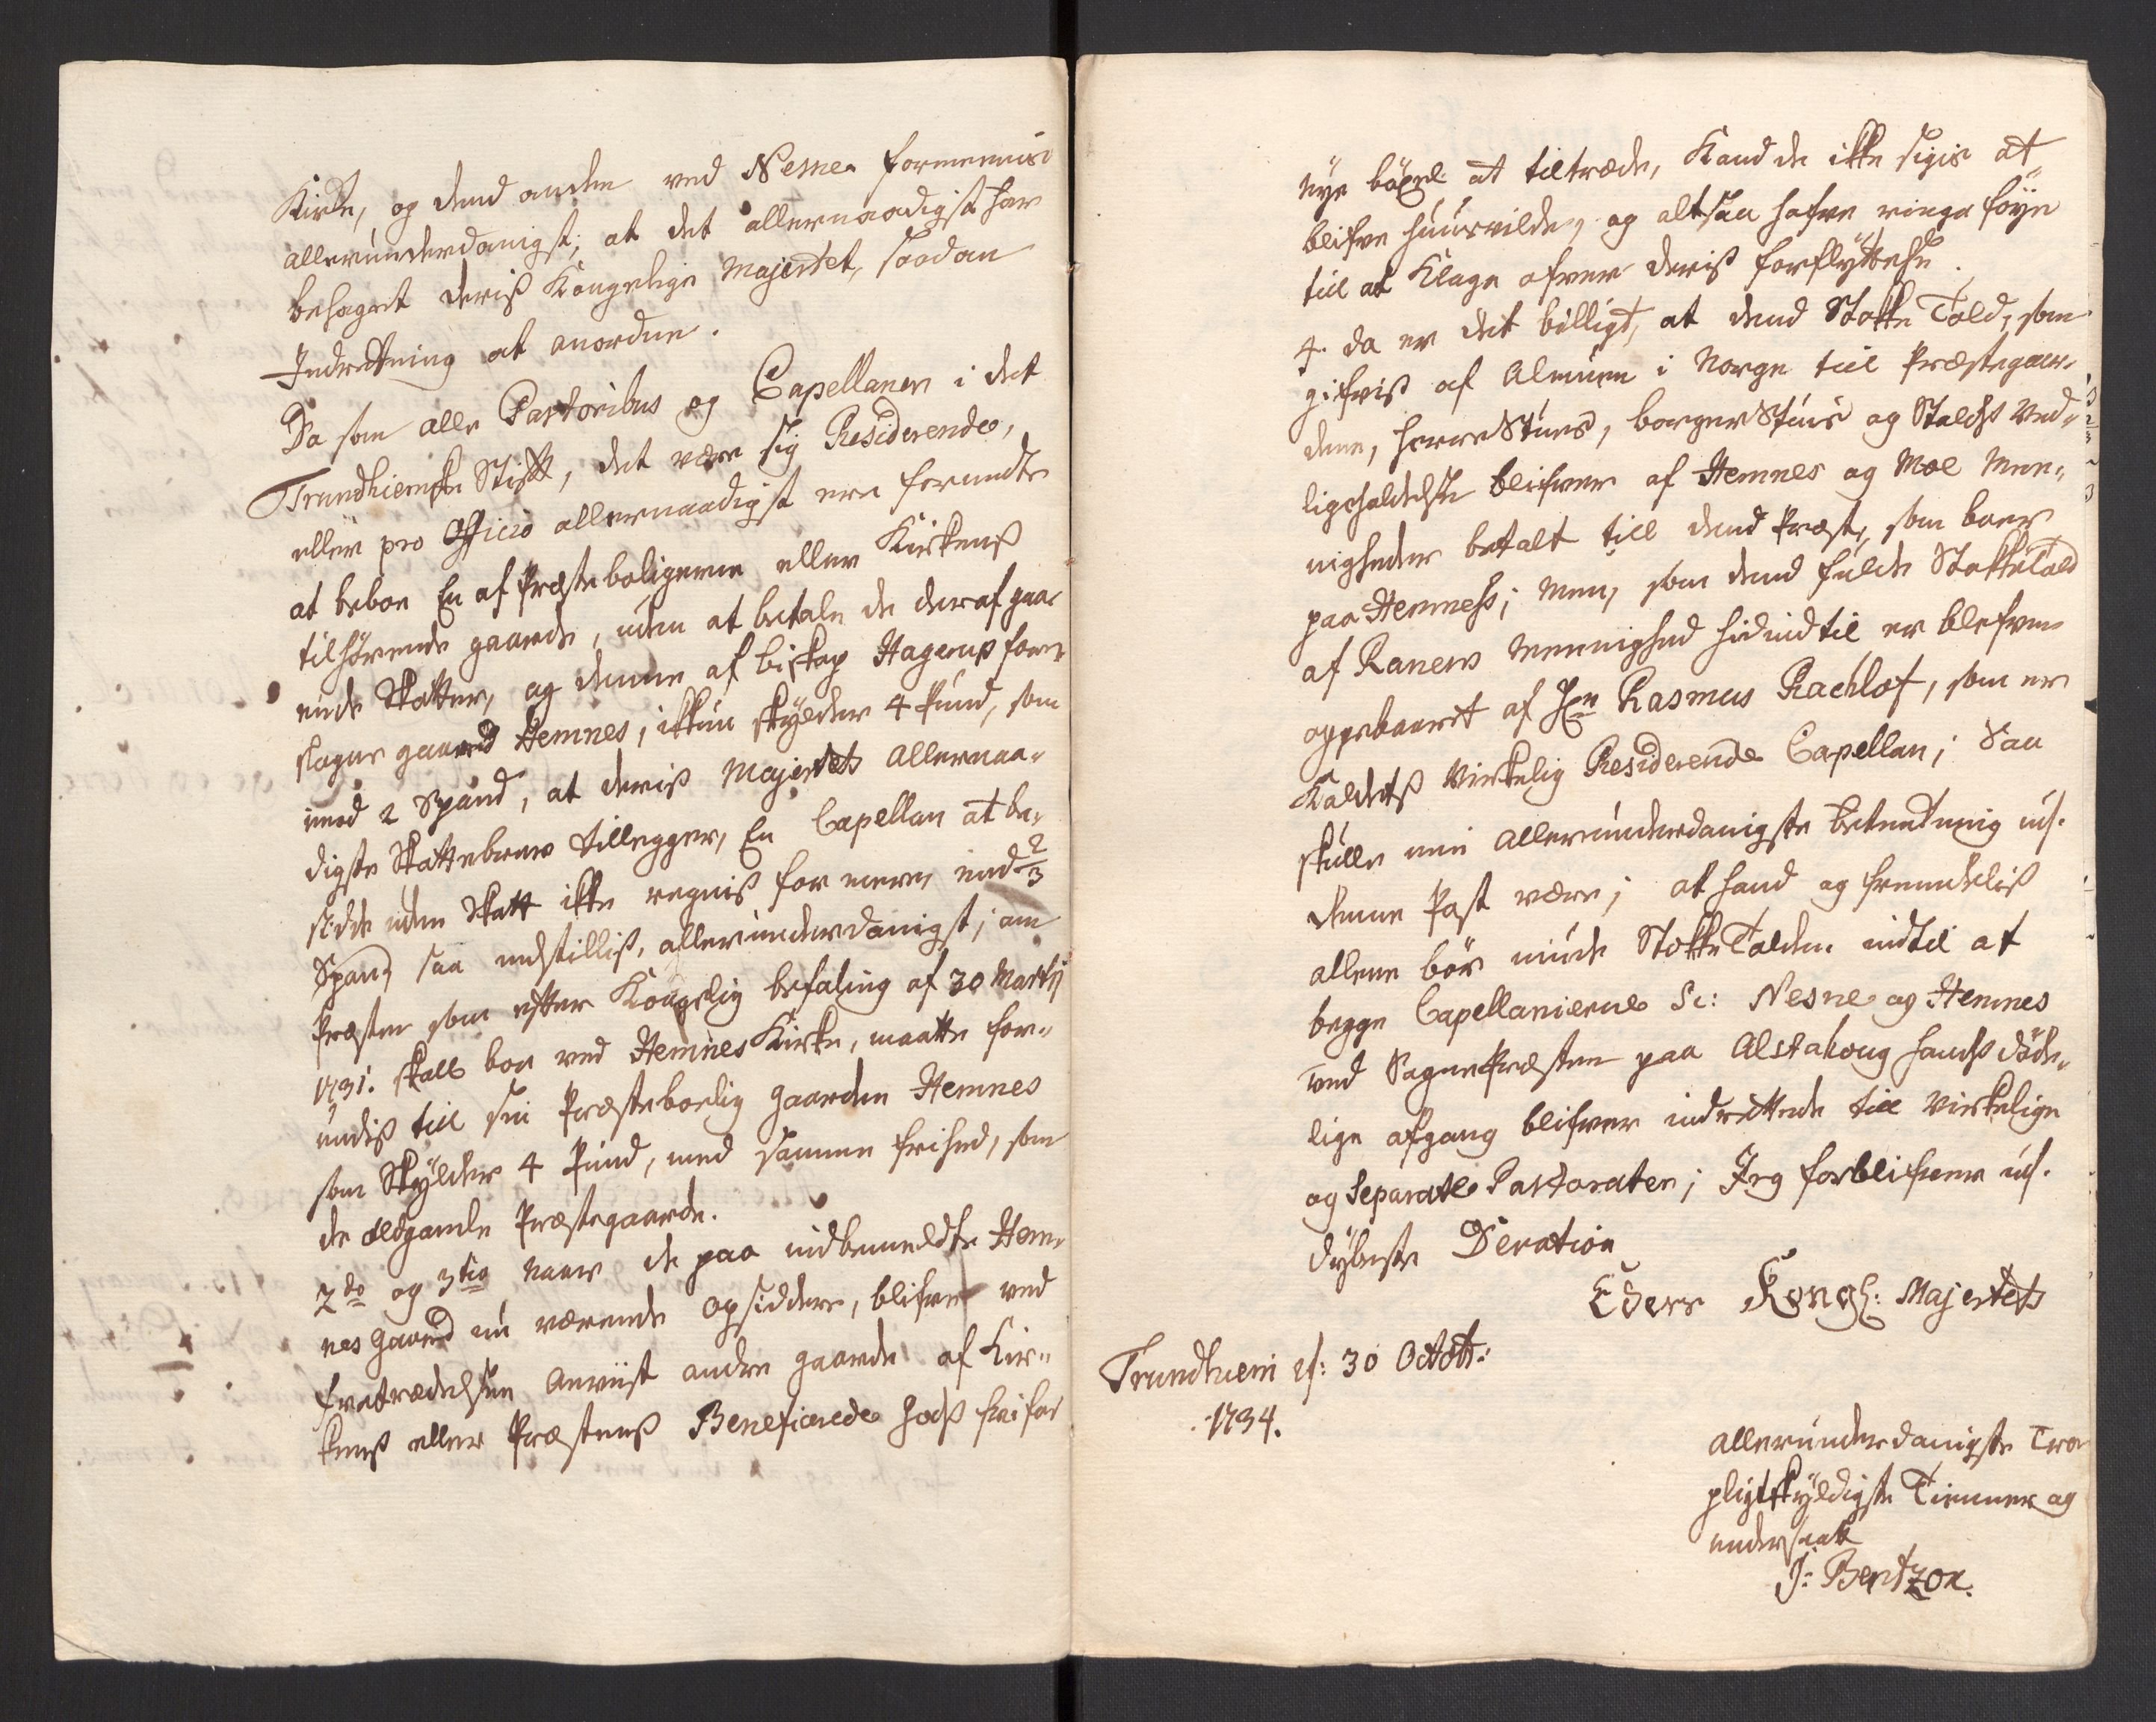 Kirke, og dend anden ved Nesne formeenis
allerunderdanigst; at det allernaadigst har
behaget deriß Kongelige Majestet, saadan
Indretning at anordne.
Da som alle Pastoribus og Capellaner i det
Trundhiemske Stifft, det være sig Residerende,
eller pro Officio allernaadigst ere forundte
at beboe En af Præsteboligerne eller Kirkens
tilhørende gaarde, uden at betale de deraf gaa-
ende Skatter, og denne af biskop Hagerup fore-
slagne gaard Hemnes, ikkun skylder 4 Pund, som
imod 2 Spand, at deriß Majestets Allernaa-
digste Skattebrev tillegger, En Capellan at be-
sidde uden Skatt ikke regniß for mere, end 2/3
Spand, saa indstilliß, allerunderdanigst; om
Præsten som efter Kongelig befaling af 30 Martij
1731. skall boe ved Hemnes Kirke, maatte for-
undiß till sin Præsteboelig gaarden Hemnes
som Skylder 4 Pund, med samme frihed, som
de eldgamle Præstegaarde.
2do og 3tio Naar de paa indbemeldte Hem-
nes gaard nu værende Opsiddere, blifver ved
fratrædelsen Anviist andre gaarde af Kir-
kens eller Præstens Beneficerede gods frit for
nye böxel at tiltræde, Kand de ikke sigis at
blifve huusvilde, og altsaa hafve ringe föye
till at Klage ofver deriß forflyttelse.
4. da er det billigt, at dend Stokke Told, som
gifviß af Almuen i Norge till Præstegaar-
dene, HerreStues, borgerStuis og Stalds Ved-
ligeholdelse blifver af Hemnes og Moe Mee-
nigheder betalt till dend Præst, som boer
paa Hemneß; Men, som dend fulde StokkeTold
af Ranens Meenighed hidindtil er blefven
oppebaaret af Hr. Rasmus Rachlof, som er
Kaldetß Virkelig Residerende Capellan; Saa
skulle min Allerunderdanigste betenkning ud.
denne Post være; at hand og fremdeliß
allene bör niude StokkeTolden indtil at
begge Capellanierne Sc: Nesne og Hemnes
ved Sognepræsten paa Alstahoug hands döde-
lige afgang blifver indrettede till Virkelige
og Separate Pastorater; Jeg forblifver ud.
dybeste Devotion
Eders Kongl: Majestets
Trundhiem d: 30 Octobr:
1734.
allerunderdanigste Troe
pligtskyldigste Tienner og
undersaat
J: Bentzon.